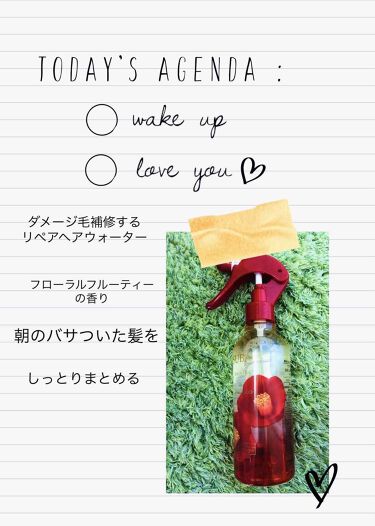 TODAY'S AGENDA :
wake up
love you
ダメージ毛補修する
リペアヘアウォーター
フローラルフルーティー
の香り
朝のバサついた髪を
しっとりまとめる